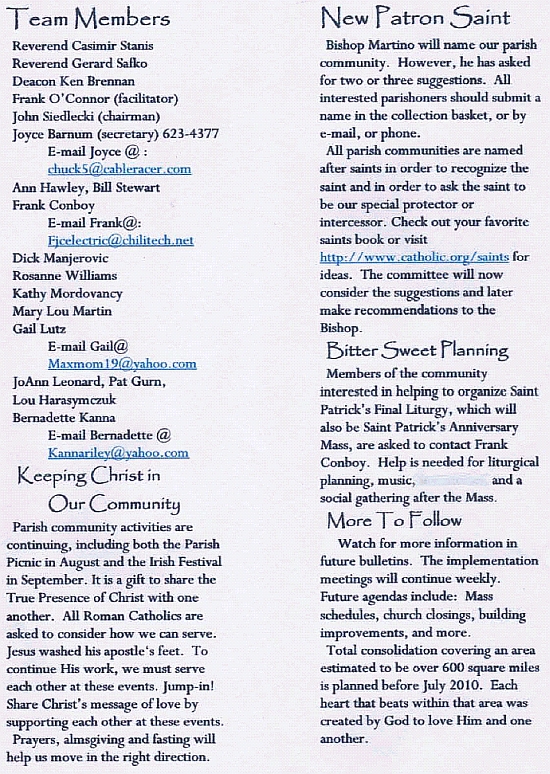 Team Members
Reverend Casimir Stanis
Reverend Gerard Safko
Deacon Ken Brennan
Frank O'Connor (facilitator)
John Siedlecki (chairman)
Joyce Barnum (secretary) 623-4377
E-mail Joyce @ :
chuck5@cableracer.com
Ann Hawley, Bill Stewart
Frank Conboy
E-mail Frank@:
Fjcelectric@chilitech.net
Dick Manjerovic
Rosanne Williams
Kathy Mordovancy
Mary Lou Martin
Gail Lutz
E-mail Gail@
Maxmom19@yahoo.com
JoAnn Leonard, Pat Gurn,
Lou Harasymczuk
Bernadette Kanna
E-mail Bernadette @
Kannariley@yahoo.com
Keeping Christ in
Our Community
Parish community activities are
continuing, including both the Parish
Picnic in August and the Irish Festival
in September. It is a gift to share the
True Presence of Christ with one
another. All Roman Catholics are
asked to consider how we can serve.
Jesus washed his apostle's feet. To
continue His work, we must serve
each other at these events. Jump-in!
Share Christ's message of love by
supporting each other at these events.
Prayers, almsgiving and fasting will
help us move in the right direction.
New Patron Saint
Bishop Martino will name our parish
community. However, he has asked
for two or three suggestions. All
interested parishoners should submit a
name in the collection basket, or by
e-mail, or phone.
All parish communities are named
after saints in order to recognize the
saint and in order to ask the saint to
be our special protector or
intercessor. Check out your favorite
saints book or visit
http://www.catholic.org/saints for
ideas. The committee will now
consider the suggestions and later
make recommendations to the
Bishop.
Bitter Sweet Planning
Members of the community
interested in helping to organize Saint
Patrick's Final Liturgy, which will
also be Saint Patrick's Anniversary
Mass, are asked to contact Frank
Conboy. Help is needed for liturgical
planning, music, and a
social gathering after the Mass.
More To Follow
Watch for more information in
future bulletins. The implementation
meetings will continue weekly.
Future agendas include: Mass
schedules, church closings, building
improvements, and more.
Total consolidation covering an area
estimated to be over 600 square miles
is planned before July 2010. Each
heart that beats within that area was
created by God to love Him and one
another.